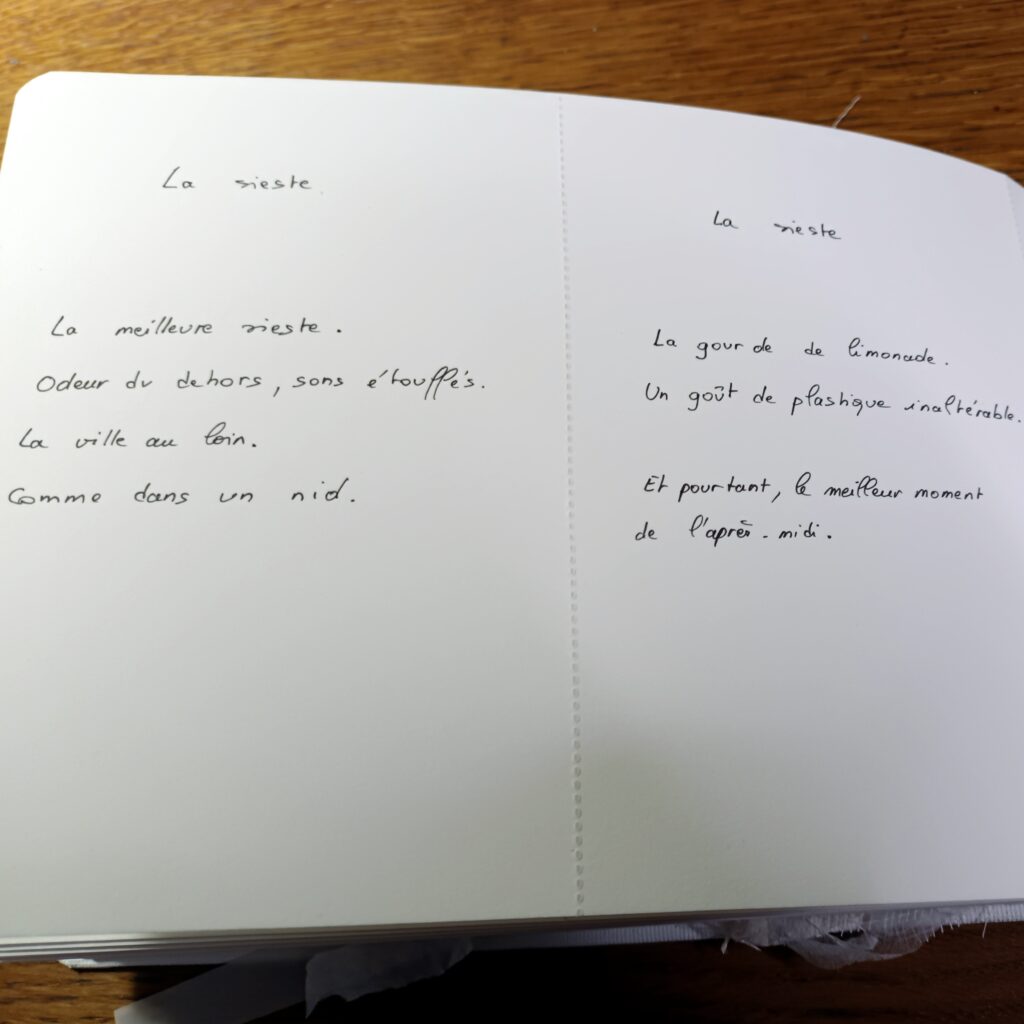 La sieste
La meilleure sieste.
Odeur du dehors, sons étouffés.
La ville au loin.
Comme dans un nid.
La sieste
La gourde de limonade.
Un goût de plastique inaltérable.
Et pourtant, le meilleur moment
de l'après-midi.